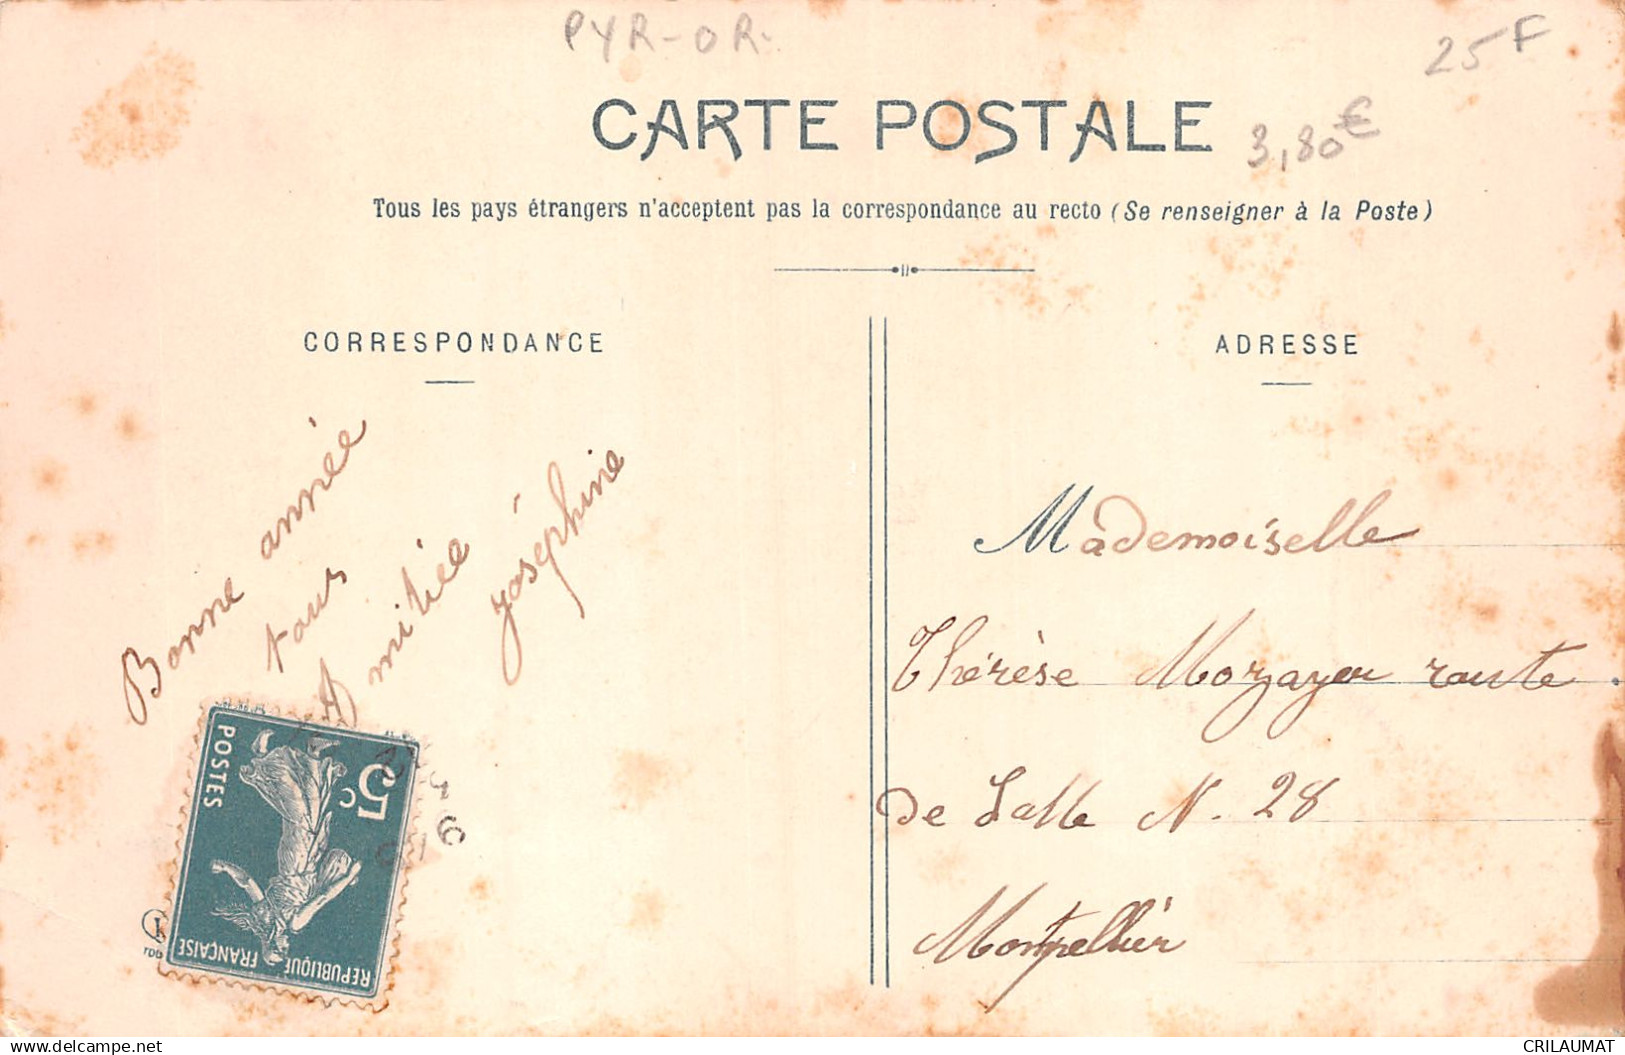 PYR-OR-
25F
CARTE POSTALE
3,80€
Tous les pays étrangers n'acceptent pas la correspondance au recto (Se renseigner à la Poste)
CORRESPONDANCE
Bonne année
tous
Amitiée
Joséphine
POSTES
5c
REPUBLIQUE
FRANÇAISE
ADRESSE
Mademoiselle
Thérèse route
de N. 28
Montpellier
CRILAUMAT